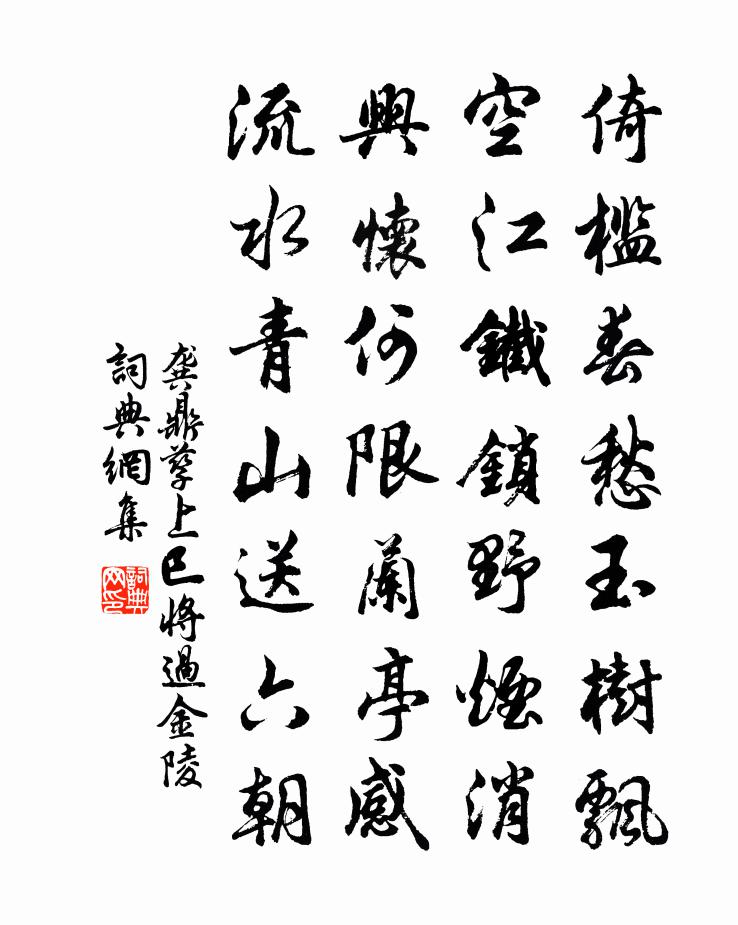 倚檻春愁玉樹飄
空江鐵鎖野煙消
興懷何限蘭亭感
流水青山送六朝
龔鼎孳上巳將過金陵
詞典網集
詞典网印